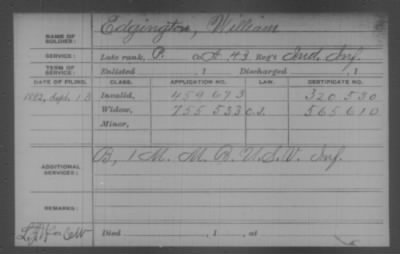 NAME OF SOLDIER: Edgington, William
SERVICE: Late rank, P. Co. A, 43 Reg't Ind. Inf.
TERM OF SERVICE: Enlisted , 1 Discharged , 1
DATE OF FILING. CLASS. APPLICATION NO. LAW. CERTIFICATE NO.
1882, Sept. 13 Invalid, 459 673 320 530
Widow, 755 533 565 610
Minor,
ADDITIONAL SERVICES: B, 1 M. M. B. U.S.V. Inf.
REMARKS:
Died , 1 , at